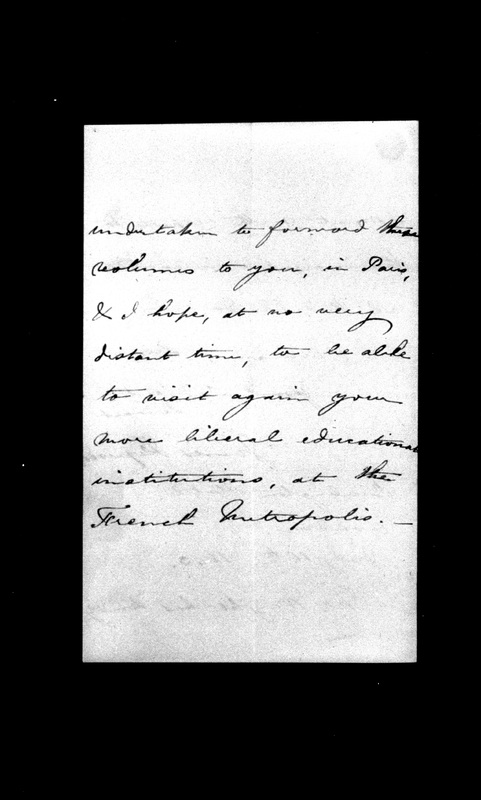 undertaken to forward these
volumes to you, in Paris,
& I hope, at no very
distant time, to be able
to visit again your
more liberal educational
institutions, at the
French Metropolis. —